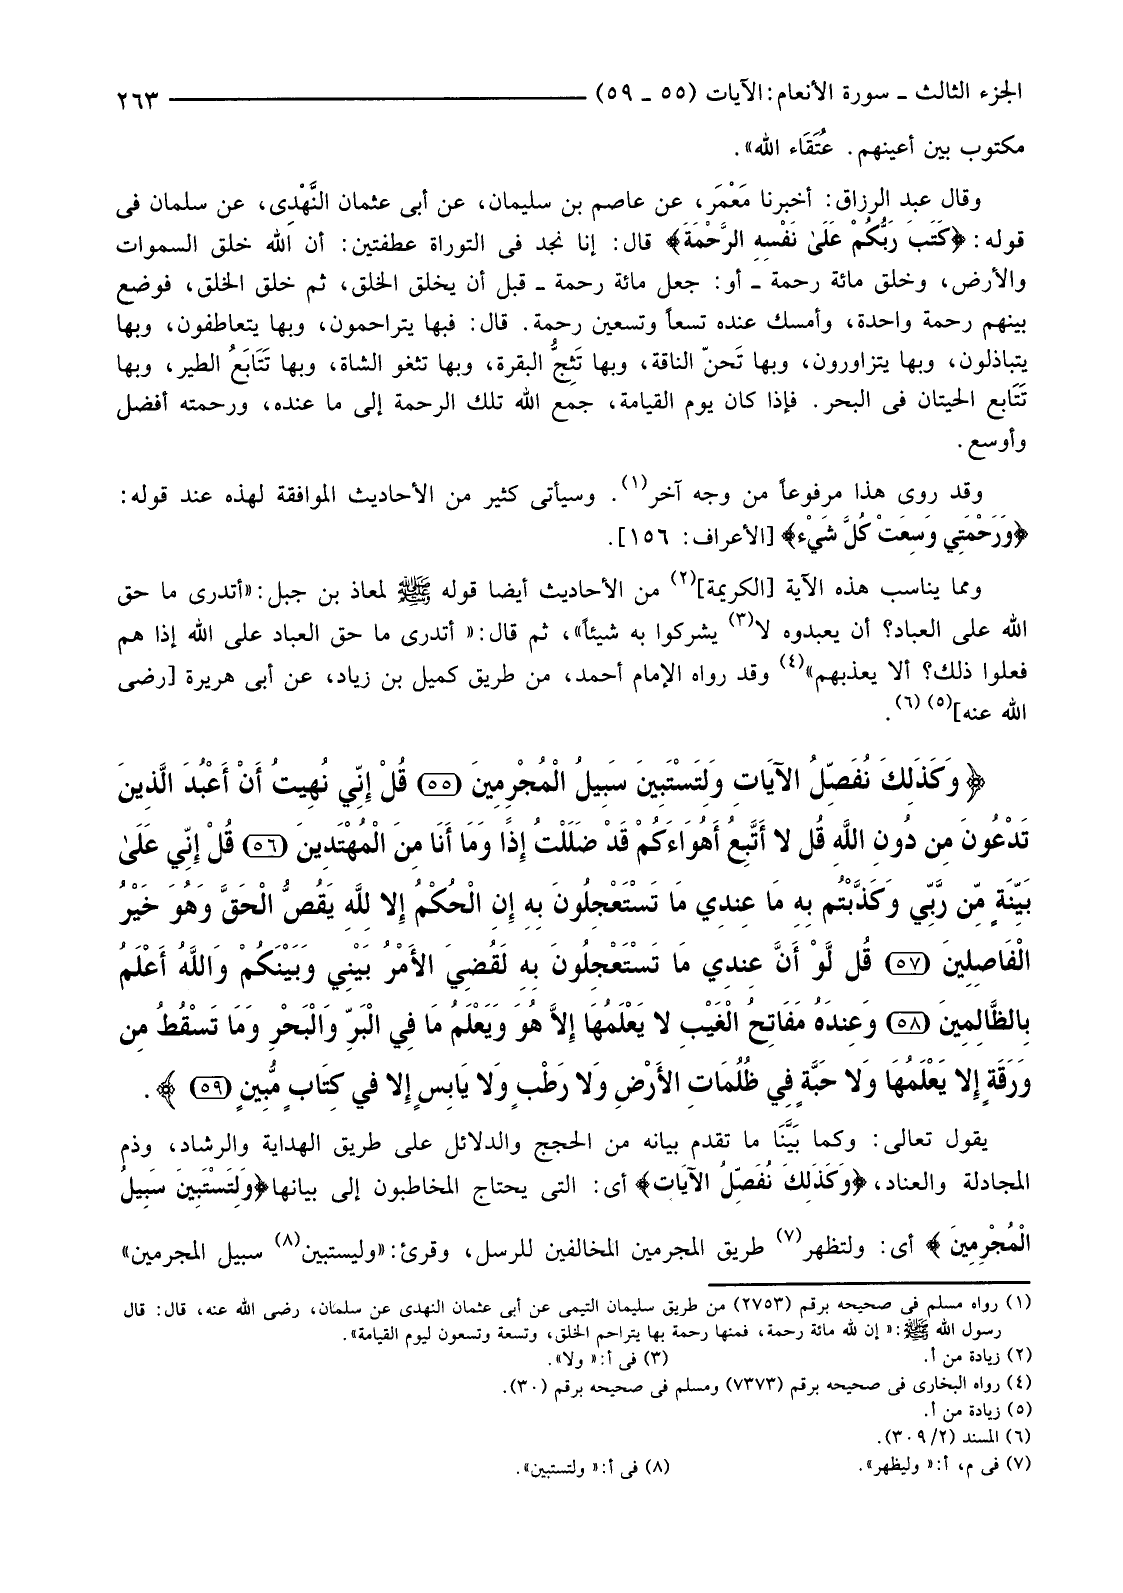 الجزء الثالث ـ سورة الأنعام: الآيات (٥٥ ـ ٥٩) ٢٦٣
مكتوب بين أعينهم. عُتَقَاء الله».
وقال عبد الرزاق: أخبرنا مَعْمَر، عن عاصم بن سليمان، عن أبى عثمان النَّهْدِى، عن سلمان فى
قوله: ﴿كَتَبَ رَبُّكُمْ عَلَىٰ نَفْسِهِ الرَّحْمَةَ﴾ قال: إنا نجد فى التوراة عطفتين: أن الله خلق السموات
والأرض، وخلق مائة رحمة ـ أو: جعل مائة رحمة ـ قبل أن يخلق الخلق، ثم خلق الخلق، فوضع
بينهم رحمة واحدة، وأمسك عنده تسعاً وتسعين رحمة. قال: فبها يتراحمون، وبها يتعاطفون، وبها
يتباذلون، وبها يتزاورون، وبها تَحنّ الناقة، وبها تَثِجُّ البقرة، وبها تثغو الشاة، وبها تَتَابَعُ الطير، وبها
تَتَابع الحيتان فى البحر. فإذا كان يوم القيامة، جمع الله تلك الرحمة إلى ما عنده، ورحمته أفضل
وأوسع.
وقد روى هذا مرفوعاً من وجه آخر(١). وسيأتى كثير من الأحاديث الموافقة لهذه عند قوله:
﴿وَرَحْمَتِي وَسِعَتْ كُلَّ شَيْءٍ﴾ [الأعراف: ١٥٦].
ومما يناسب هذه الآية [الكريمة](٢) من الأحاديث أيضا قوله ﷺ لمعاذ بن جبل: «أتدرى ما حق
الله على العباد؟ أن يعبدوه لا(٣) يشركوا به شيئاً»، ثم قال: « أتدرى ما حق العباد على الله إذا هم
فعلوا ذلك؟ ألا يعذبهم»(٤) وقد رواه الإمام أحمد، من طريق كميل بن زياد، عن أبى هريرة [رضى
الله عنه](٥) (٦).
﴿ وَكَذَلِكَ نُفَصِّلُ الآيَاتِ وَلِتَسْتَبِينَ سَبِيلُ الْمُجْرِمِينَ (٥٥) قُلْ إِنِّي نُهِيتُ أَنْ أَعْبُدَ الَّذِينَ
تَدْعُونَ مِن دُونِ اللَّهِ قُل لا أَتَّبِعُ أَهْوَاءَكُمْ قَدْ ضَلَلْتُ إِذًا وَمَا أَنَا مِنَ الْمُهْتَدِينَ (٥٦) قُلْ إِنِّي عَلَىٰ
بَيِّنَةٍ مِّن رَّبِّي وَكَذَّبْتُم بِهِ مَا عِندِي مَا تَسْتَعْجِلُونَ بِهِ إِنِ الْحُكْمُ إِلا لِلَّهِ يَقُصُّ الْحَقَّ وَهُوَ خَيْرُ
الْفَاصِلِينَ (٥٧) قُل لَّوْ أَنَّ عِندِي مَا تَسْتَعْجِلُونَ بِهِ لَقُضِيَ الأَمْرُ بَيْنِي وَبَيْنَكُمْ وَاللَّهُ أَعْلَمُ
بِالظَّالِمِينَ (٥٨) وَعِندَهُ مَفَاتِحُ الْغَيْبِ لا يَعْلَمُهَا إِلاَّ هُوَ وَيَعْلَمُ مَا فِي الْبَرِّ وَالْبَحْرِ وَمَا تَسْقُطُ مِن
وَرَقَةٍ إِلا يَعْلَمُهَا وَلا حَبَّةٍ فِي ظُلُمَاتِ الأَرْضِ وَلا رَطْبٍ وَلا يَابِسٍ إِلا فِي كِتَابٍ مُّبِينٍ (٥٩) ﴾.
يقول تعالى: وكما بَيَّنَا ما تقدم بيانه من الحجج والدلائل على طريق الهداية والرشاد، وذم
المجادلة والعناد، ﴿وَكَذَلِكَ نُفَصِّلُ الآيَاتِ﴾ أى: التى يحتاج المخاطبون إلى بيانها ﴿وَلِتَسْتَبِينَ سَبِيلُ
الْمُجْرِمِينَ ﴾ أى: ولتظهر(٧) طريق المجرمين المخالفين للرسل، وقرئ: «وليستبين(٨) سبيل المجرمين»
(١) رواه مسلم فى صحيحه برقم (٢٧٥٣) من طريق سليمان التيمى عن أبى عثمان النهدى عن سلمان، رضى الله عنه، قال: قال
رسول الله ﷺ: « إن لله مائة رحمة، فمنها رحمة بها يتراحم الخلق، وتسعة وتسعون ليوم القيامة».
(٢) زيادة من أ. (٣) فى أ: « ولا».
(٤) رواه البخارى فى صحيحه برقم (٧٣٧٣) ومسلم فى صحيحه برقم (٣٠).
(٥) زيادة من أ.
(٦) المسند (٢/ ٣٠٩).
(٧) فى م، أ: « وليظهر». (٨) فى أ: « ولتستبين».